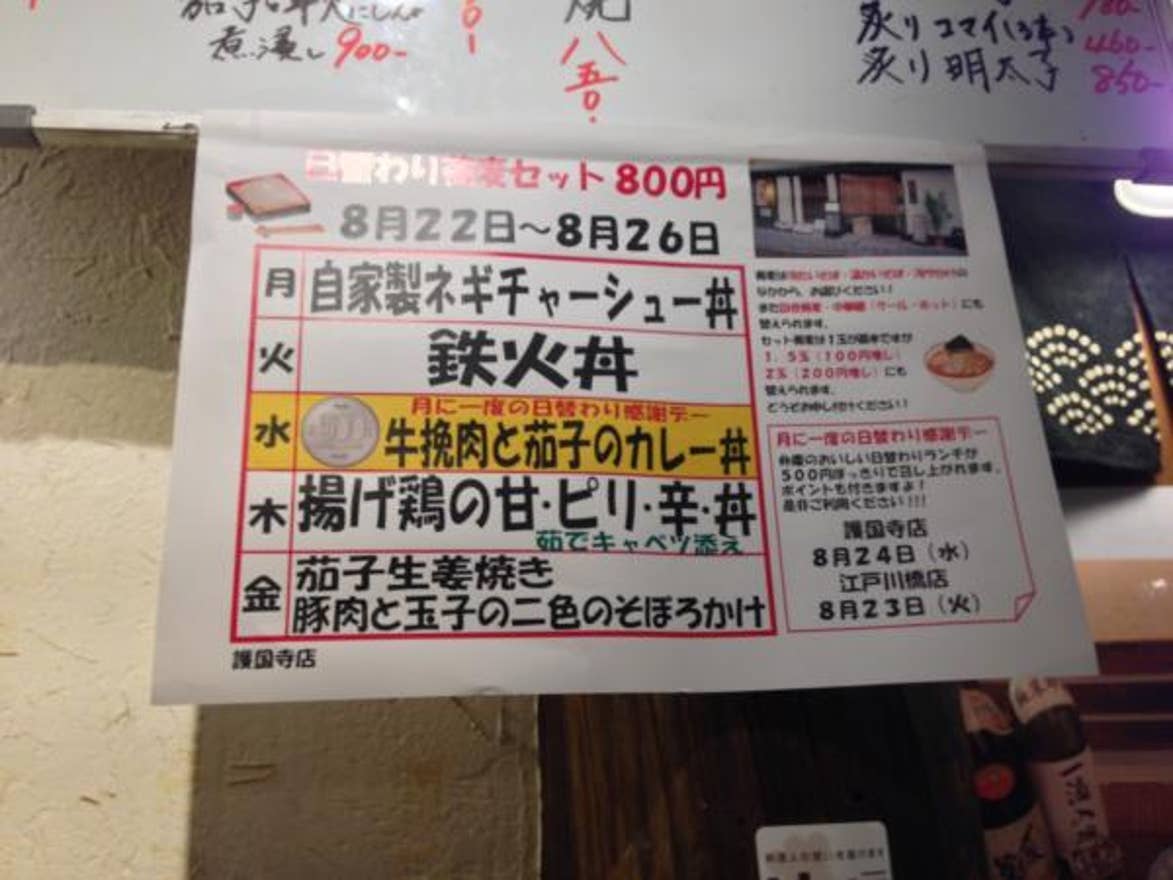 煮浸し 900-
焼
八五〇.
炙りコマイ(3本) 460-
炙り明太子 850-
日替わり蕎麦セット 800円
8月22日～8月26日
月 自家製ネギチャーシュー丼
火 鉄火丼
水 月に一度の日替わり感謝デー
牛挽肉と茄子のカレー丼
木 揚げ鶏の甘・ピリ・辛・丼
茹でキャベツ添え
金 茄子生姜焼き
豚肉と玉子の二色のそぼろかけ
護国寺店
なかから、お選びください！
替えられます。
セット蕎麦は1玉が基本ですが
1.5玉（100円増し）
2玉（200円増し）にも
替えられます。
どうぞお申し付けください！
月に一度の日替わり感謝デー
のおいしい日替わりランチが
500円ぽっきりで召し上がれます。
ポイントも付きますよ！
是非ご利用ください!!!
護国寺店
8月24日（水）
江戸川橋店
8月23日（火）